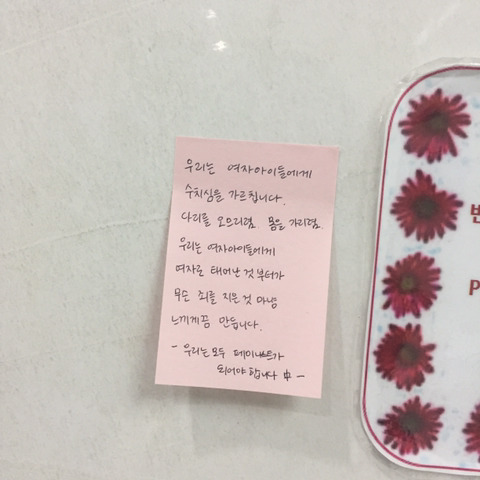 우리는 여자아이들에게
수치심을 가르칩니다.
다리를 오므리렴 몸을 가리렴.
우리는 여자아이들에게
여자로 태어난 것부터가
무슨 죄를 지은 것 마냥
느끼게끔 만듭니다.
- 우리는 모두 페미니스트가
되어야 합니다 中 -
P